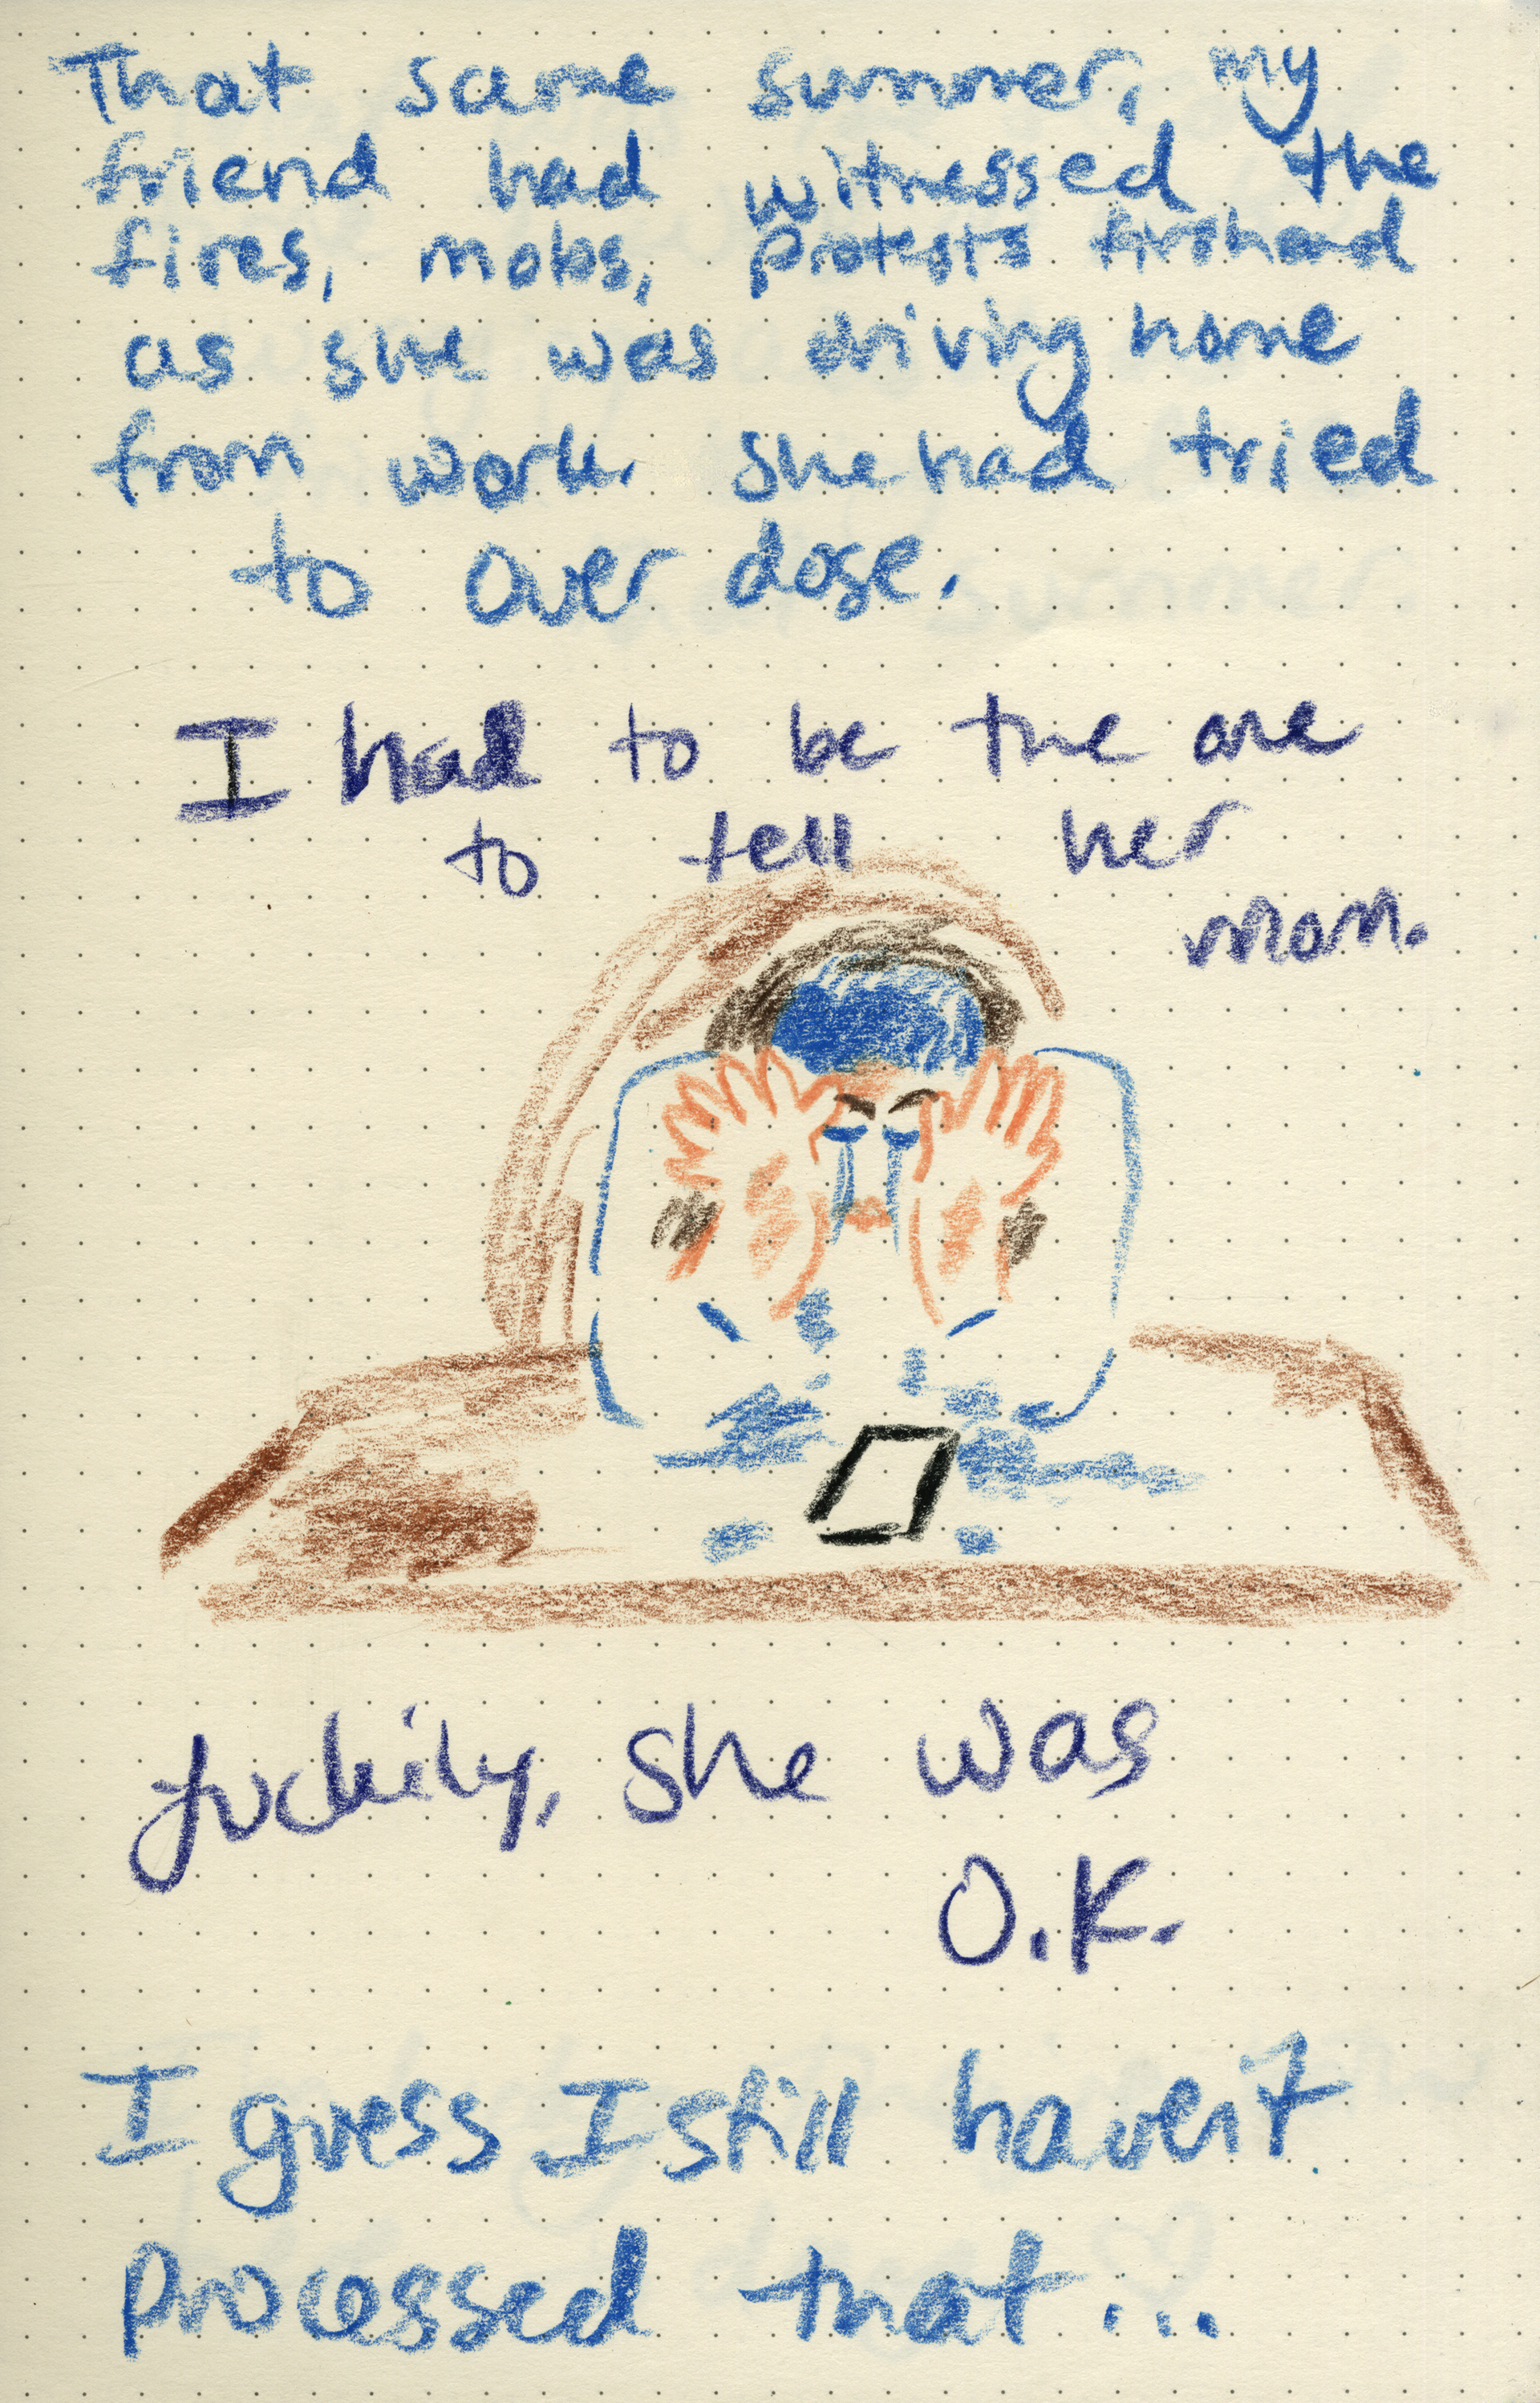 That same summer, my
friend had witnessed the
fires, mobs, protests firshand
as she was driving home
from work. She had tried
to over dose.
I had to be the one
to tell her
mom.
luckily, she was
O.K.
I guess I still haven't
processed that...